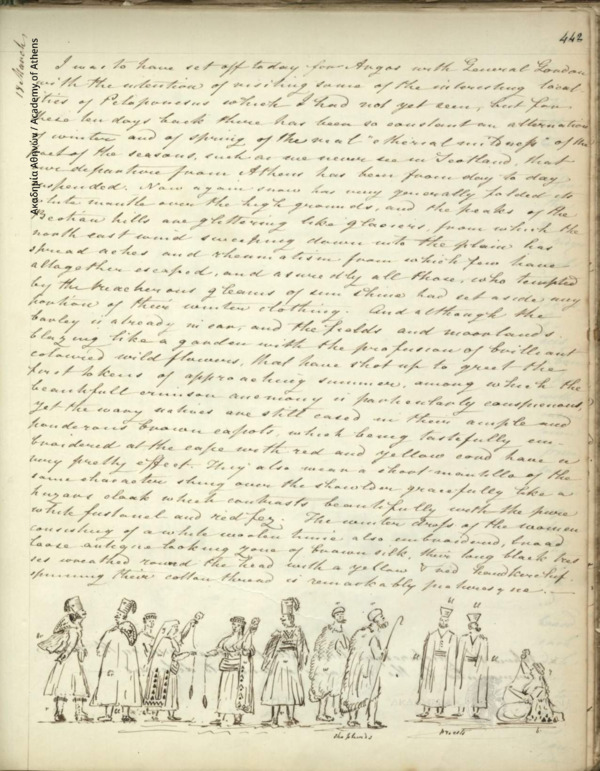 442
18 March
Ακαδημία Αθηνών / Academy of Athens
I was to have set off today for Argos with General Gordon
with the intention of visiting some of the interesting local
ities of Peloponesus which I had not yet seen, but for
these ten days back there has been so constant an alternation
of winter and of spring of the real "etherial mildness" of the
of the seasons, such as we never see in Scotland, that
our departure from Athens has been from day to day
suspended. Now again snow has very generally folded its
white mantle over the high grounds, and the peaks of the
Beotian hills are glittering like glaciers, from which the
north east wind sweeping down into the plain has
spread aches and rheumatism from which few have
altogether escaped, and assuredly all those, who tempted
by the treacherous gleams of sun shine had set aside any
portion of their winter clothing. And although the
barley is already in ear, and the fields and moorlands
blazing like a garden with the profusion of brilliant
coloured wild flowers, that have shot up to greet the
first tokens of approaching summer, among which the
beautifull crimson anemony is particularly conspicuous,
Yet the wary natives are still cased in their ample and
ponderous brown capots, which being tastefully em-
broidered at the cape with red and yellow cord have a
very pretty effect. They also wear a short mantle of the
same character slung over the shoulder gracefully like a
huzars cloak which contrasts beautifully with the pure
white fustanel and red fez. The winter dress of the women
consisting of a white woolen also embroidered, broad
loose antique looking zone of brown silk, their long black tres
ses wreathed round the head with a yellow & red handkerchief
spinning their cotton thread is remarkably picturesque.
shepherds
priests